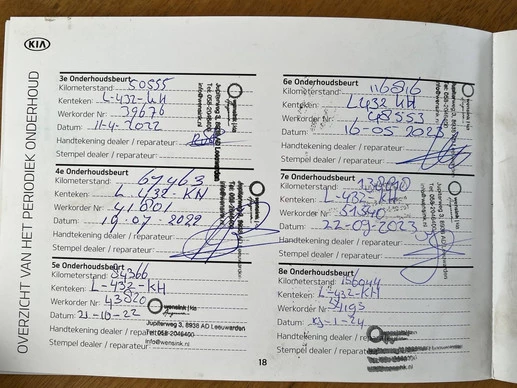 KIA
OVERZICHT VAN HET PERIODIEK ONDERHOUD
3e Onderhoudsbeurt
Kilometerstand: 50555
Kenteken: L-432-KH
Werkorder Nr: 39676
Datum: 11-4-2022
Handtekening dealer / reparateur:
Stempel dealer / reparateur:
4e Onderhoudsbeurt
Kilometerstand: 67463
Kenteken: L-432-KH
Werkorder Nr: 41801
Datum: 19-07-2022
Handtekening dealer / reparateur:
Stempel dealer / reparateur:
5e Onderhoudsbeurt
Kilometerstand: 84366
Kenteken: L-432-KH
Werkorder Nr: 43820
Datum: 21-10-22
Handtekening dealer / reparateur:
Stempel dealer / reparateur:
wensink | kia
Jupiterweg 3, 8938 AD Leeuwarden
Tel: 058-2046400
info@wensink.nl
6e Onderhoudsbeurt
Kilometerstand: 116816
Kenteken: L432 KH
Werkorder Nr: 48553
Datum: 16-05-2023
Handtekening dealer / reparateur:
Stempel dealer / reparateur:
7e Onderhoudsbeurt
Kilometerstand:
Kenteken: L-432-KH
Werkorder Nr: 51340
Datum: 22-09-2023
Handtekening dealer / reparateur:
Stempel dealer / reparateur:
8e Onderhoudsbeurt
Kilometerstand: 156944
Kenteken: L-432-KH
Werkorder Nr: 54195
Datum:
Handtekening dealer / reparateur:
Stempel dealer / reparateur:
18